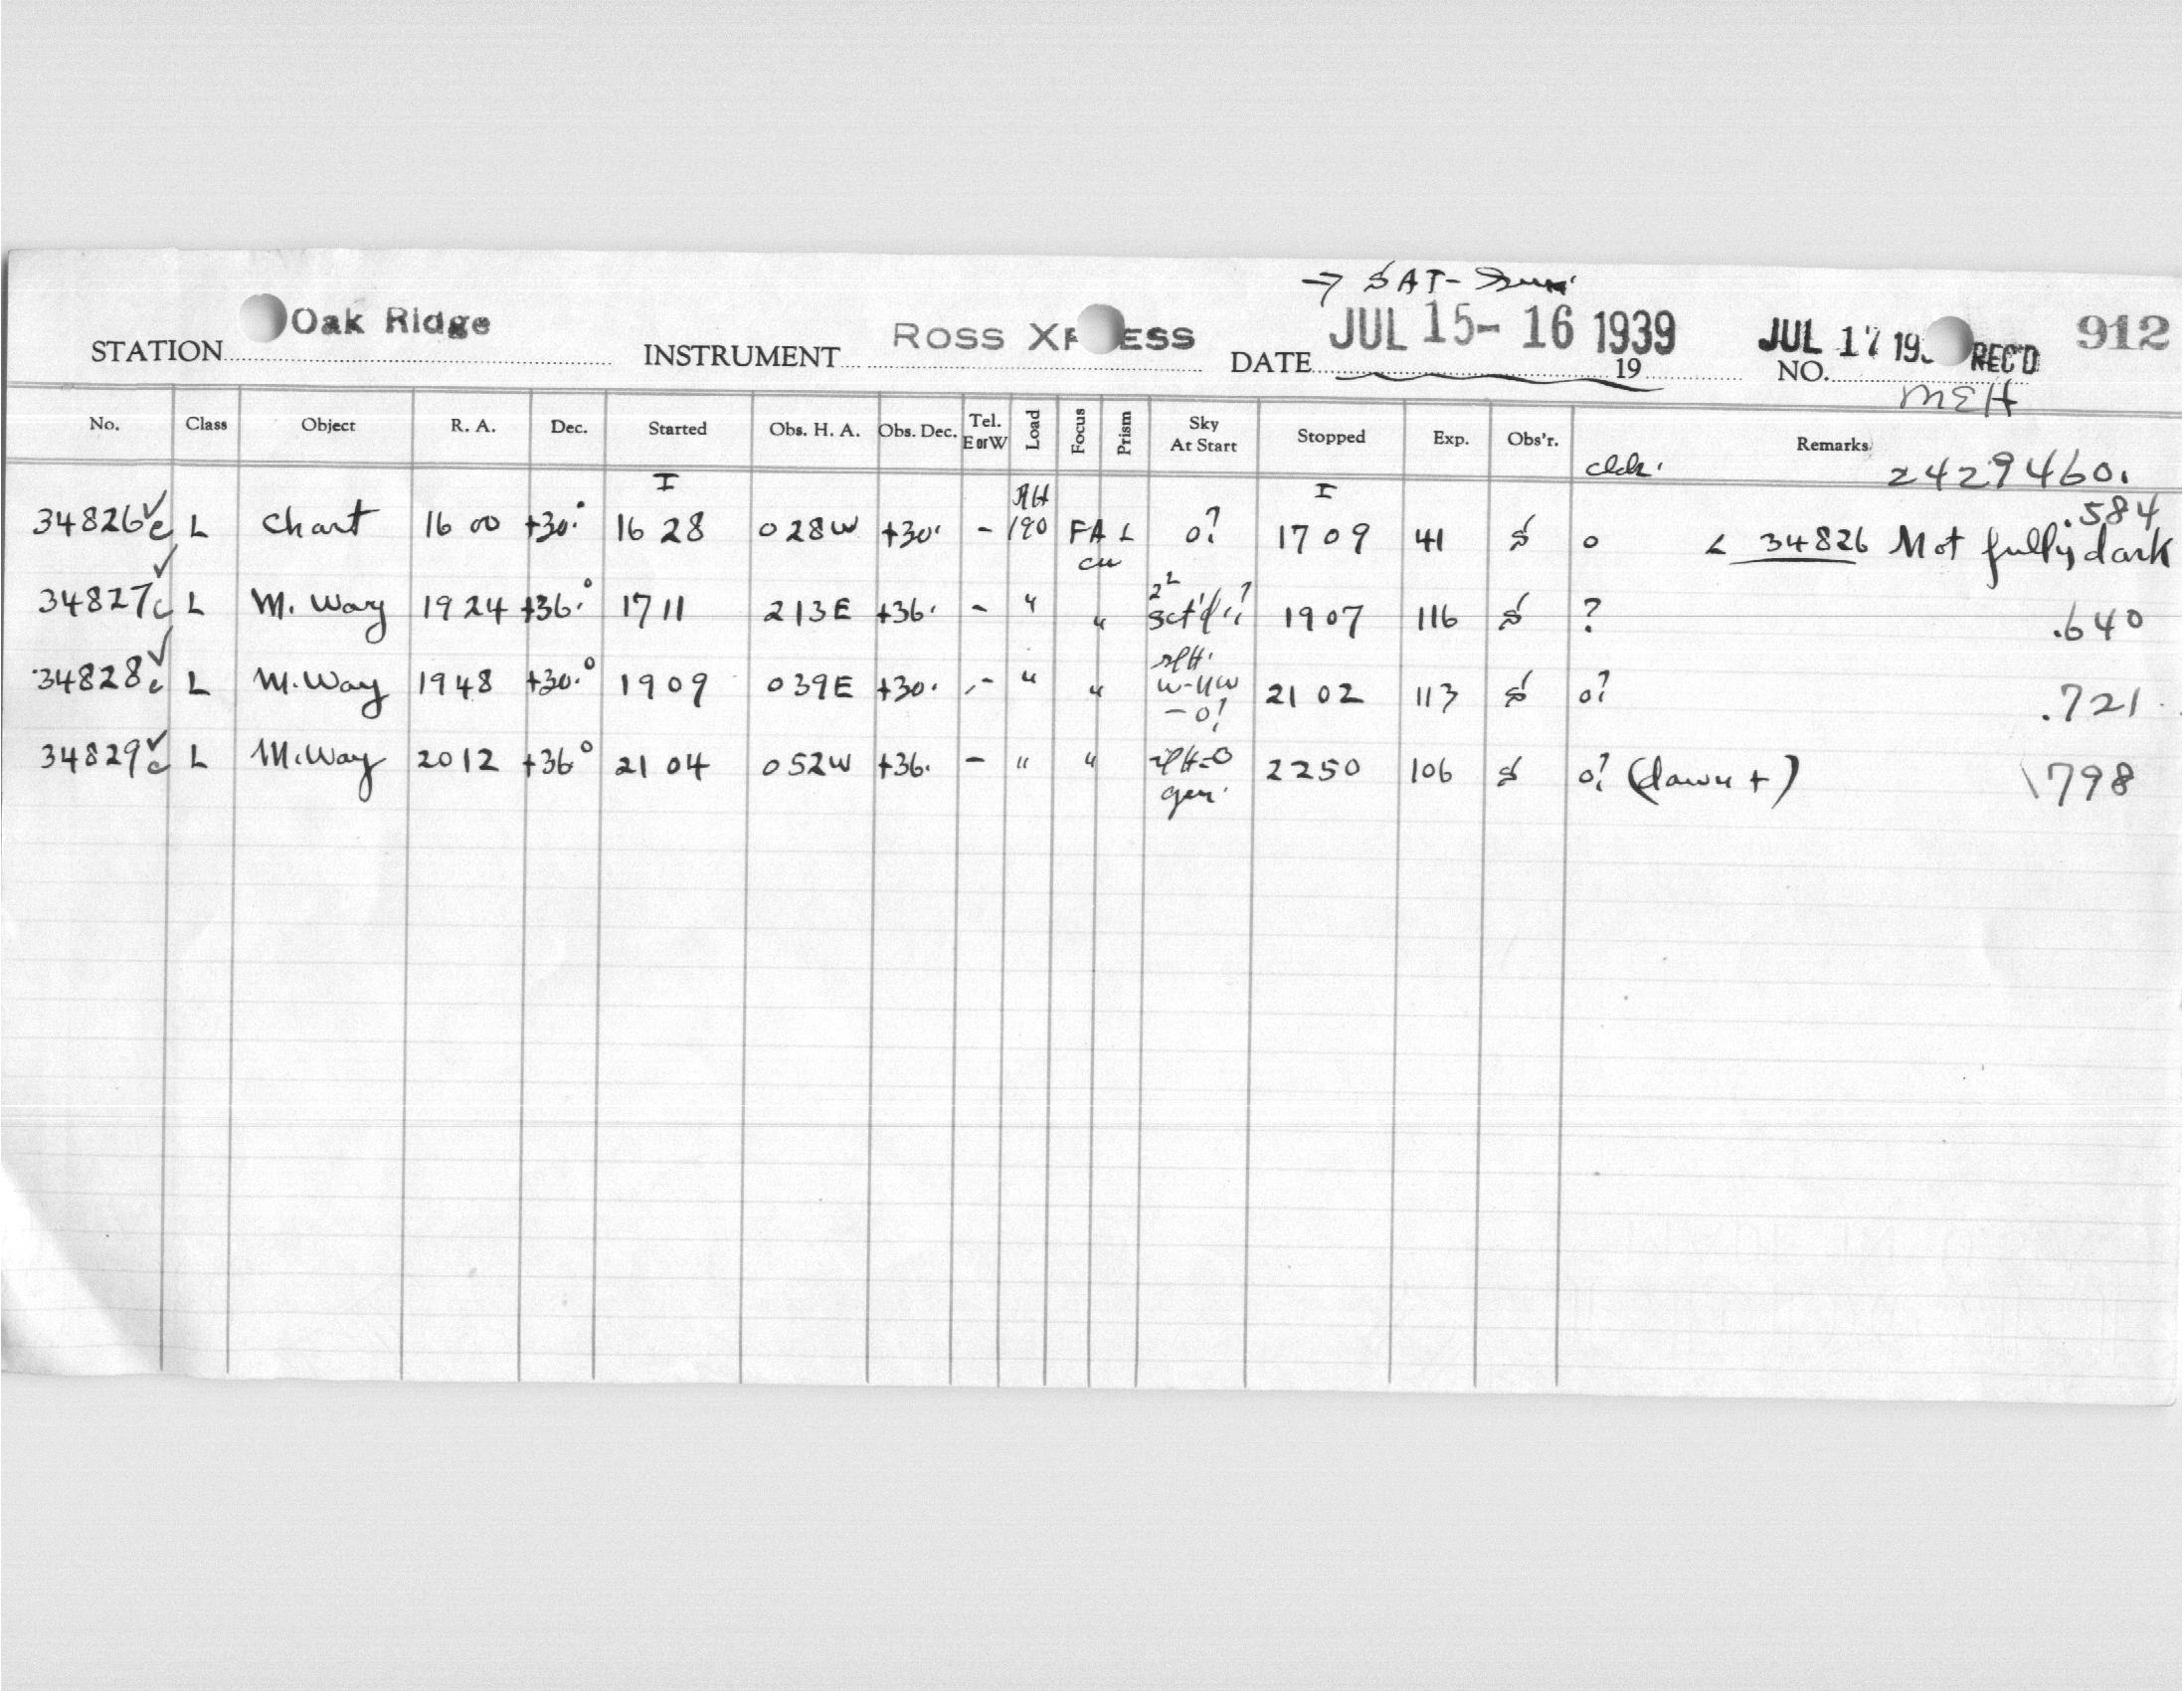 → SAT-Sun.
STATION Oak Ridge INSTRUMENT ROSS XPRESS DATE JUL 15-16 1939 19 JUL 17 193 REC'D NO. 912
MEH
No. Class Object R. A. Dec. Started Obs. H. A. Obs. Dec. Tel. E or W Load Focus Prism Sky At Start Stopped Exp. Obs'r. Remarks
2429460.
I I
34826 c L Chart 16 00 +30° 16 28 0 28W +30. - 190 FA L 0? 17 09 41 S 0 < 34826 Not fully dark .584
34827 c L M. Way 19 24 +36.° 17 11 2 13E +36. - " " sct'd 19 07 116 S ? .640
34828 c L M. Way 19 48 +30.° 19 09 0 39E +30. - " " W-NW - 0? 21 02 113 S 0? .721
34829 c L M. Way 20 12 +36° 21 04 0 52W +36. - " " 22 50 106 S 0? (dawn +) 798